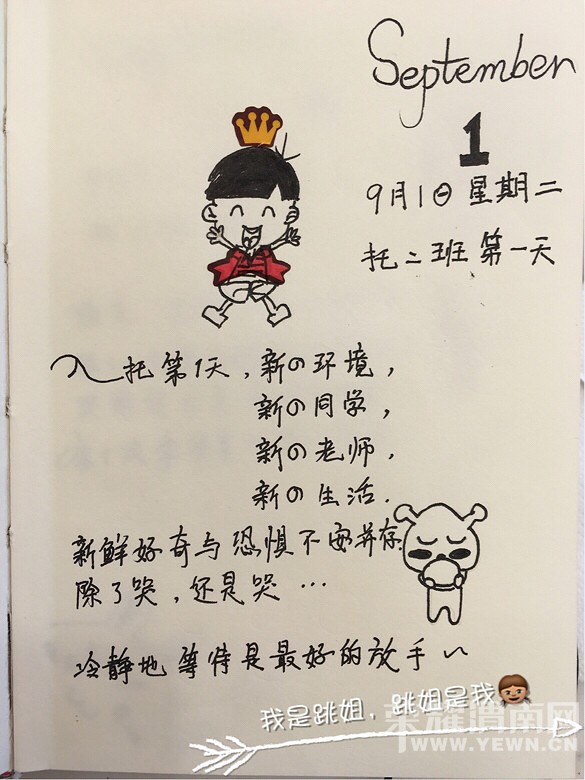 September
1
9月1日 星期二
托二班 第一天
入托第1天,新の环境,
新の同学,
新の老师,
新の生活.
新鲜好奇与恐惧不安并存
除了哭,还是哭…
冷静地等待是最好的放手~
我是跳姐,跳姐是我
荣耀渭南网
WWW.YEWN.CN